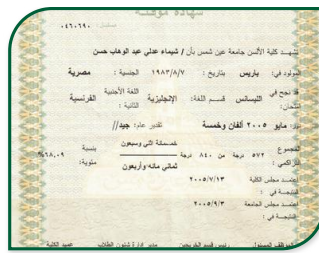 شهادة مؤقتة
مسلسل: ٠٤٦٠٦٩٠
تشهد كلية الألسن جامعة عين شمس بأن / شيماء عدلي عبد الوهاب حسن
المولود في: باريس بتاريخ : ١٩٨٣/٨/٧ الجنسية : مصرية
قد نجح في امتحان: الليسانس قسم اللغة: الإنجليزية اللغة الأجنبية الثانية : الفرنسية
دور: مايو ٢٠٠٥ ألفان وخمسة تقدير عام: جيد//
المجموع التراكمي : ٥٧٢ درجة من ٨٤٠ درجة خمسمائة اثنى وسبعون
ثماني مائه وأربعون بنسبة مئوية: ٦٨,٠٩%
اعتمد مجلس الكلية النتيجة في : ٢٠٠٥/٧/١٣
اعتمد مجلس الجامعة النتيجة في : ٢٠٠٥/٩/٣
الموظف المسئول رئيس قسم الخريجين مدير إدارة شئون الطلاب عميد الكلية